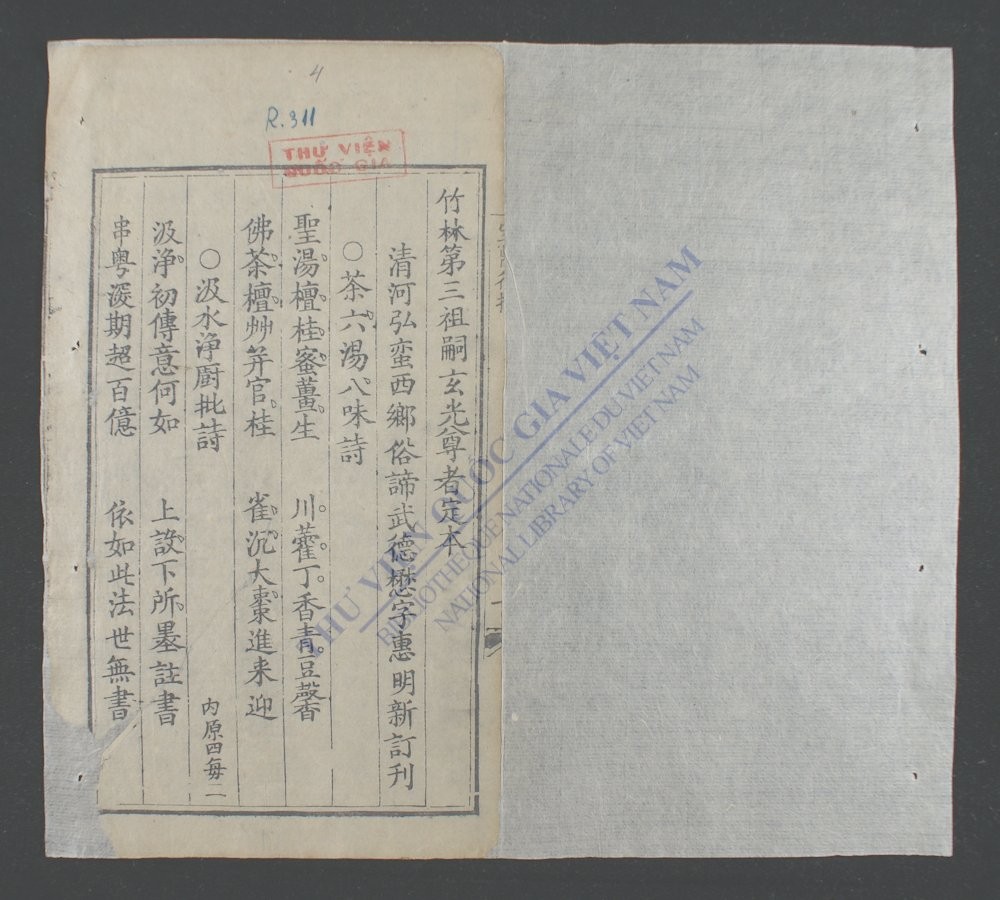 4
R.311
THƯ VIỆN
QUỐC GIA
竹林第三祖嗣玄光尊者定本
清河弘蛮西鄉俗諦武德懋字惠明新訂刊
○茶六湯八味詩
聖湯檀桂蜜薑生 川藿丁香青豆馨
佛茶檀艸并官桂 雀沉大棗進来迎
○汲水淨廚批詩 内原四每二
汲淨初傳意何如 上設下所墨註書
串粤凌期超百億 依如此法世無書
THƯ VIỆN QUỐC GIA VIỆT NAM
BIBLIOTHEQUE NATIONALE DU VIETNAM
NATIONAL LIBRARY OF VIET NAM